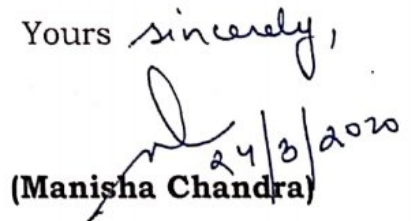 Yours sincerely,
24/3/2020
(Manisha Chandra)